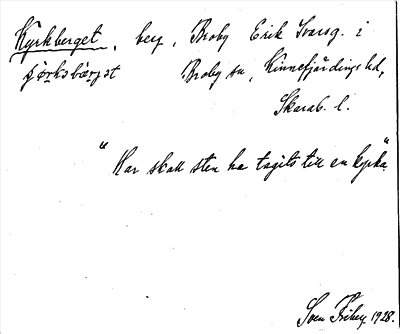 Kyrkberget, berg, Broby Erik Svensg. i
Broby sn, Kinnefjärdings hd,
Skarab. l.
"Här skall sten ha tagits till en kyrka"
Sven Friberg 1928.